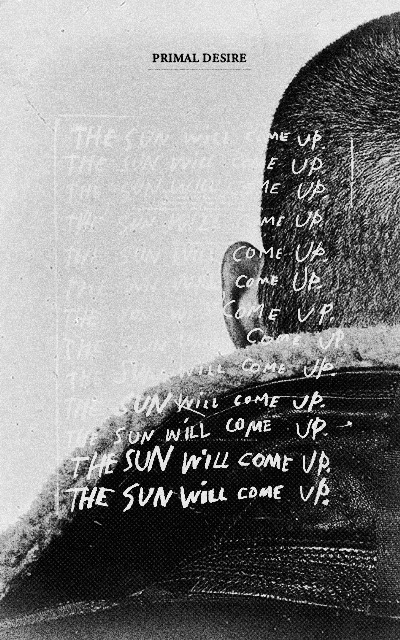 PRIMAL DESIRE
THE SUN WILL COME UP.
THE SUN WILL COME UP.
THE SUN WILL COME UP.
THE SUN WILL COME UP.
THE SUN WILL COME UP.
THE SUN WILL COME UP.
THE SUN WILL COME UP.
THE SUN WILL COME UP.
THE SUN WILL COME UP.
THE SUN WILL COME UP.
THE SUN WILL COME UP.
THE SUN WILL COME UP.
THE SUN WILL COME UP.